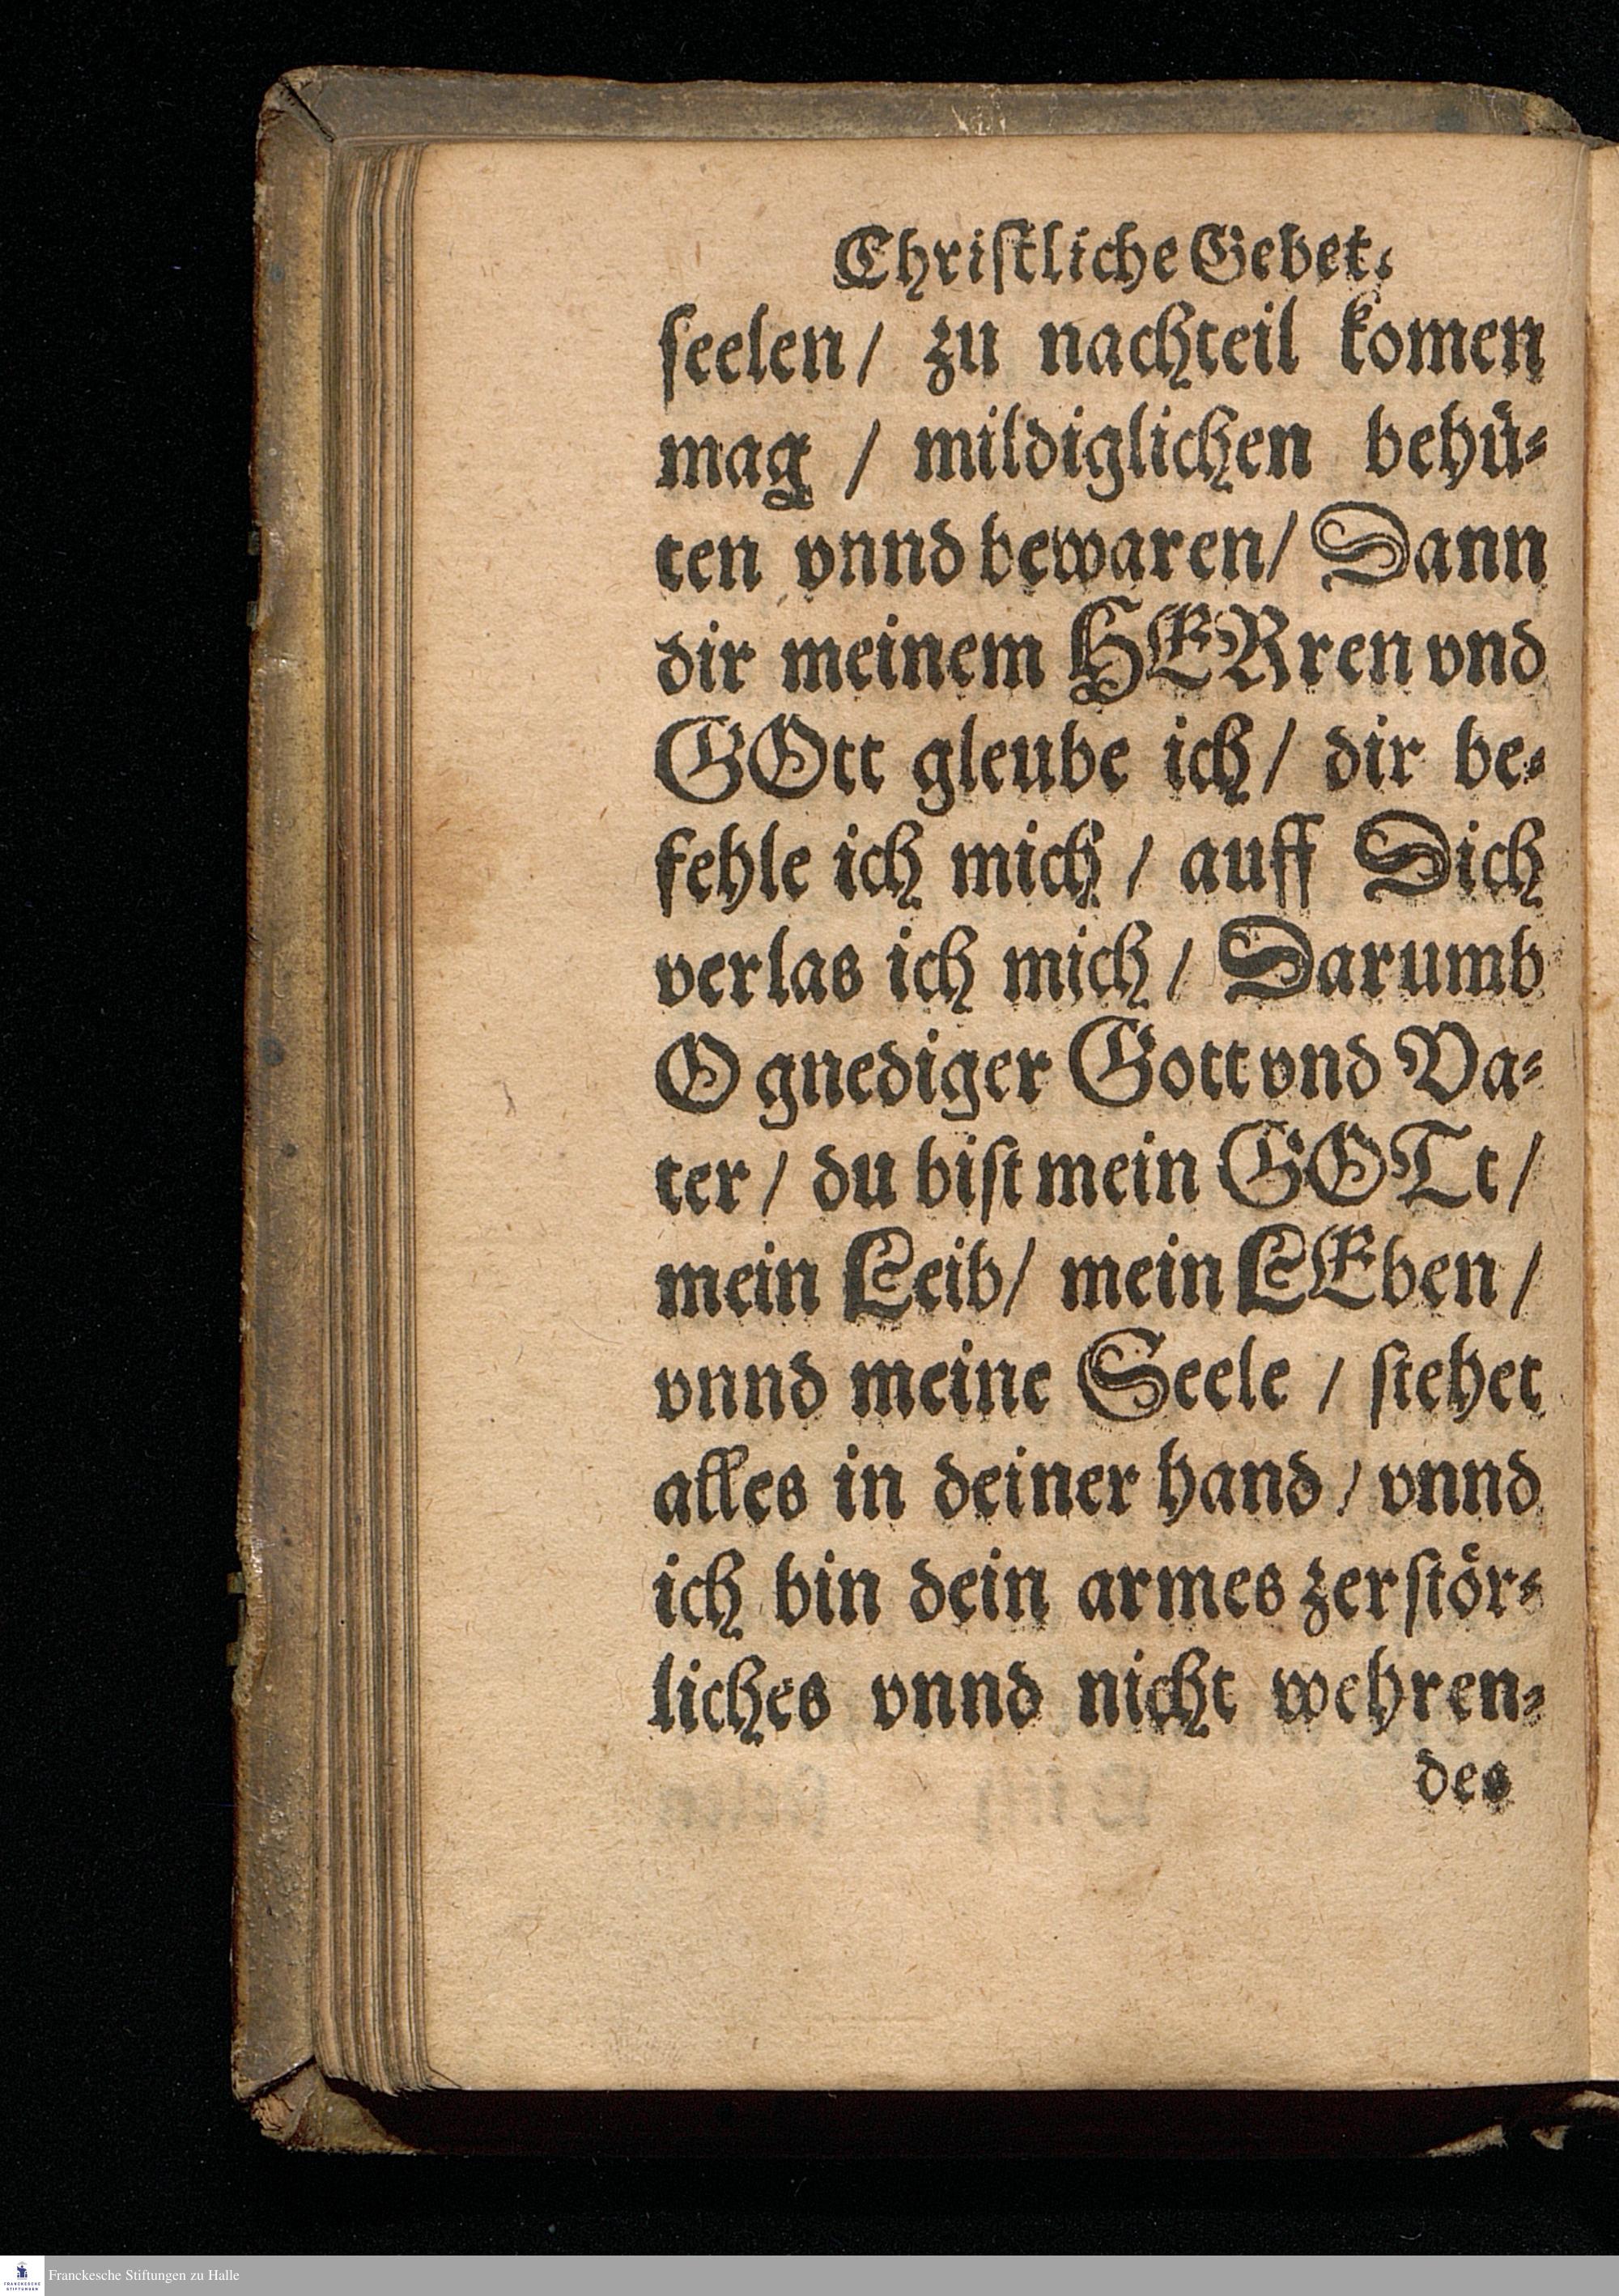 Chriſtliche Gebet.
ſeelen/ zu nachteil komen
mag / mildiglichen behuͤ⸗
ten vnnd bewaren/ Dann
dir meinem HERren vnd
GOtt gleube ich/ dir be⸗
fehle ich mich / auff Dich
verlas ich mich / Darumb
O gnediger Gott vnd Va⸗
ter / du biſt mein GOTt /
mein Leib/ mein LEben /
vnnd meine Seele / ſtehet
alles in deiner hand / vnnd
ich bin dein armes zerſtoͤr⸗
liches vnnd nicht wehren⸗
des
FRANCKESCHE STIFTUNGEN
Franckesche Stiftungen zu Halle